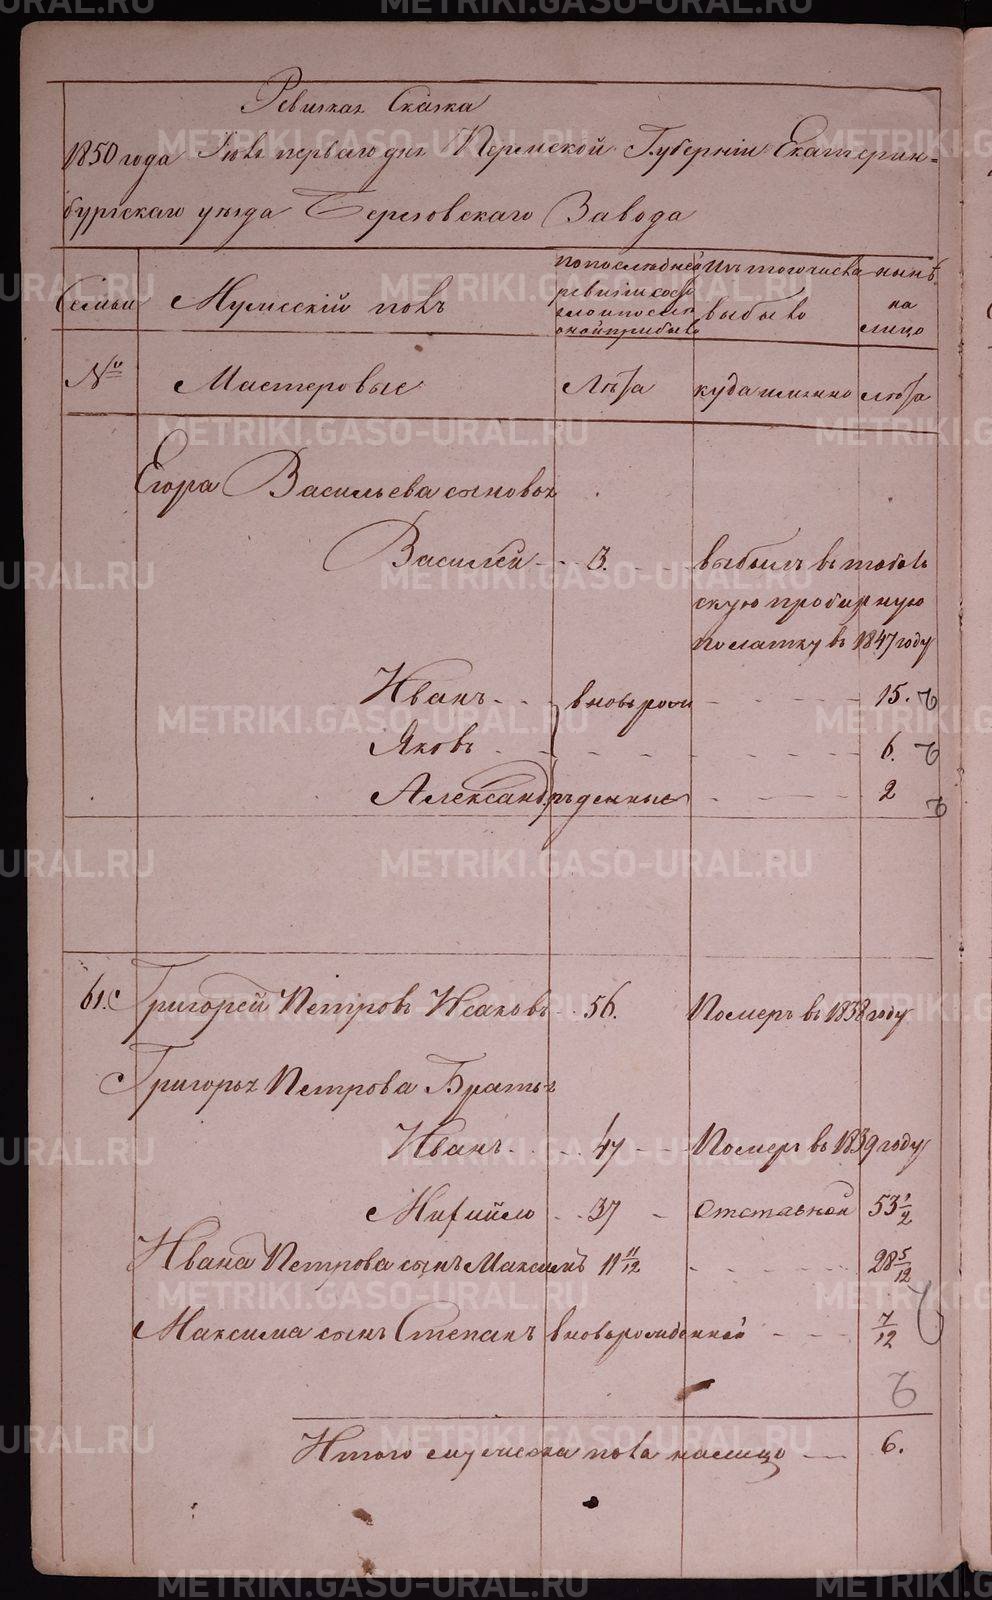 Ревизкая Сказка
1850 года Июля перваго дня Пермской Губернiи Екатерин-
бургскаго уезда Березовскаго Завода
Семьи
Мужескiй полъ
по последней
ревизiи состояло и после оной прибыло
Изъ того числа
выбыло
ныне
на
лицо
№
Мастеровые
Лета
куда именно
лета
Егора Васильева сыновья
Василей 3. выбылъ въ тоболь
скую пробирную
полатку въ 1847 году
Иванъ вновь рож 15.
Яковъ 6.
Александръ денные 2
61. Григорей Петровъ Исаковъ 56. Померъ въ 1838 году
Григорья Петрова Братья
Иванъ 47 Померъ въ 1839 году
Михайло 37 отставной 53 1/2
Ивана Петрова сынъ Максимъ 11 11/12 28 5/12
Максима сынъ Степанъ вновьрожденной 7/12
Итого мужеска пола налицо 6.
METRIKI.GASO-URAL.RU